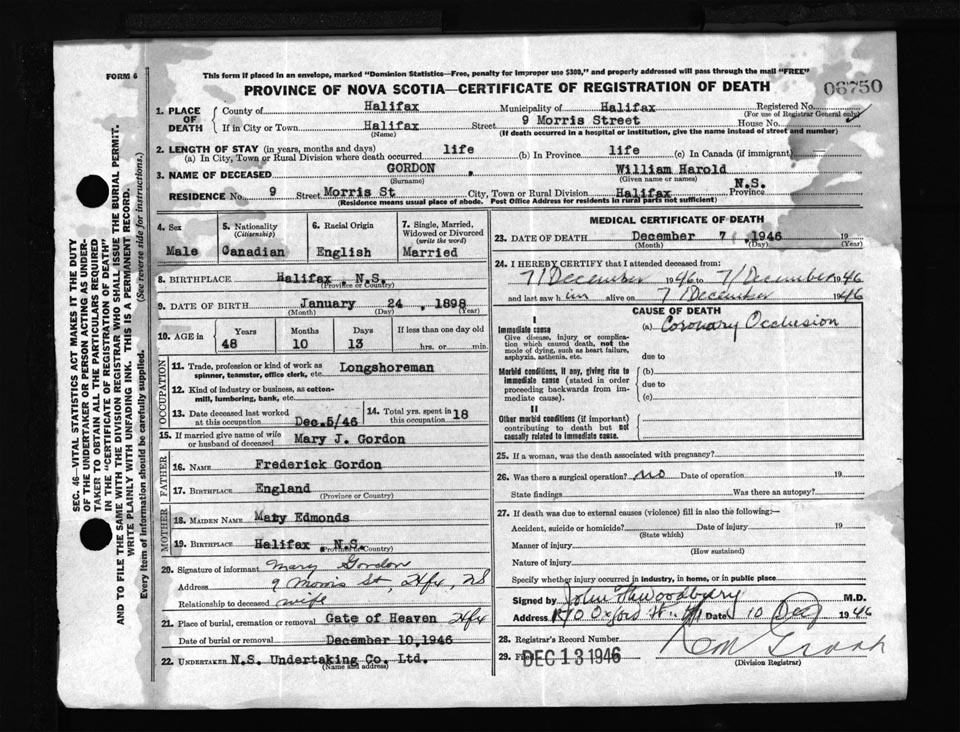 FORM 6
This form if placed in an envelope, marked "Dominion Statistics—Free, penalty for improper use $300," and properly addressed will pass through the mail "FREE"
PROVINCE OF NOVA SCOTIA—CERTIFICATE OF REGISTRATION OF DEATH
06750
1. PLACE OF DEATH
County of Halifax Municipality of Halifax Registered No.
(For use of Registrar General only)
If in City or Town Halifax Street 9 Morris Street House No.
(Name) (If death occurred in a hospital or institution, give the name instead of street and number)
2. LENGTH OF STAY (in years, months and days)
(a) In City, Town or Rural Division where death occurred life (b) In Province life (c) In Canada (if immigrant)
3. NAME OF DECEASED GORDON, William Harold
(Surname) (Given name or names)
RESIDENCE No. 9 Street Morris St City, Town or Rural Division Halifax Province N.S.
(Residence means usual place of abode. Post Office Address for residents in rural parts not sufficient)
4. Sex
Male
5. Nationality
(Citizenship)
Canadian
6. Racial Origin
English
7. Single, Married, Widowed or Divorced
(write the word)
Married
8. BIRTHPLACE Halifax N.S.
(Province or Country)
9. DATE OF BIRTH January 24, 1898
(Month) (Day) (Year)
10. AGE in Years Months Days If less than one day old
48 10 13 hrs. or min.
OCCUPATION
11. Trade, profession or kind of work as spinner, teamster, office clerk, etc. Longshoreman
12. Kind of industry or business, as cotton-mill, lumbering, bank, etc.
13. Date deceased last worked at this occupation Dec.5/46
14. Total yrs. spent in this occupation 18
15. If married give name of wife or husband of deceased Mary J. Gordon
FATHER
16. NAME Frederick Gordon
17. BIRTHPLACE England
(Province or Country)
MOTHER
18. MAIDEN NAME Mary Edmonds
19. BIRTHPLACE Halifax, N.S.
(Province or Country)
20. Signature of informant Mary Gordon
Address 9 Morris St, Hfx, NS
Relationship to deceased wife
21. Place of burial, cremation or removal Gate of Heaven Hfx
Date of burial or removal December 10,1946
22. UNDERTAKER N.S. Undertaking Co. Ltd.
(Name and address)
MEDICAL CERTIFICATE OF DEATH
23. DATE OF DEATH December 7 1946 19
(Month) (Day) (Year)
24. I HEREBY CERTIFY that I attended deceased from:
7/December 1946 to 7/December 1946
and last saw him alive on 7/December 1946
CAUSE OF DEATH
I
Immediate cause
Give disease, injury or complication which caused death, not the mode of dying, such as heart failure, asphyxia, asthenia, etc.
(a) Coronary Occlusion
due to
Morbid conditions, if any, giving rise to immediate cause (stated in order proceeding backwards from immediate cause).
(b)
due to
(c)
II
Other morbid conditions (if important) contributing to death but not causally related to immediate cause.
25. If a woman, was the death associated with pregnancy?
26. Was there a surgical operation? no Date of operation 19
State findings Was there an autopsy?
27. If death was due to external causes (violence) fill in also the following:—
Accident, suicide or homicide? Date of injury 19
(State which)
Manner of injury
(How sustained)
Nature of injury
Specify whether injury occurred in industry, in home, or in public place
Signed by John Woodbury M.D.
Address Oxford St. Date 10 Dec 1946
28. Registrar's Record Number
29. DEC 13 1946
(Division Registrar)
SEC. 46—VITAL STATISTICS ACT MAKES IT THE DUTY
OF THE UNDERTAKER OR PERSON ACTING AS UNDER-
TAKER TO OBTAIN ALL THE PARTICULARS REQUIRED
IN THE "CERTIFICATE OF REGISTRATION OF DEATH"
AND TO FILE THE SAME WITH THE DIVISION REGISTRAR WHO SHALL ISSUE THE BURIAL PERMIT.
WRITE PLAINLY WITH UNFADING INK. THIS IS A PERMANENT RECORD.
Every item of information should be carefully supplied. (See reverse side for instructions.)